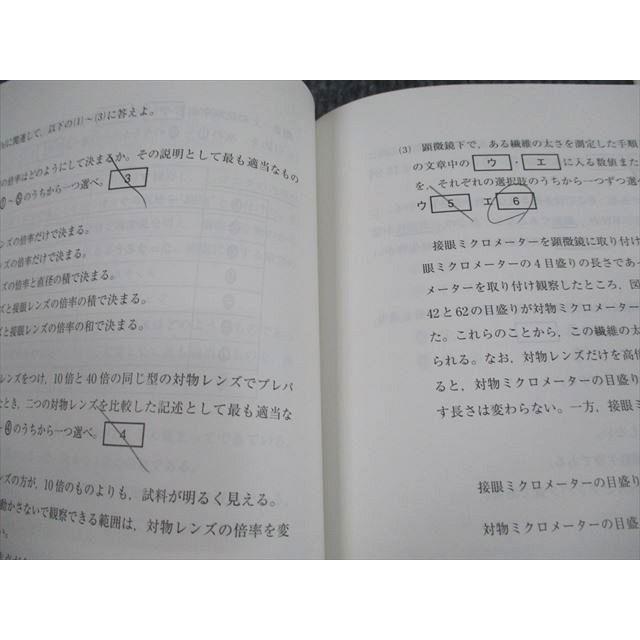 に関連して、以下の(1)~(3)に答えよ。
の倍率はどのようにして決まるか。その説明として最も適当なもの
のうちから一つ選べ。 3
ンズの倍率だけで決まる。
ンズの倍率だけで決まる。
ンズの倍率と直径の積で決まる。
ズと接眼レンズの倍率の積で決まる。
ズと接眼レンズの倍率の和で決まる。
レンズをつけ、10倍と40倍の同じ型の対物レンズでプレパ
たとき、二つの対物レンズを比較した記述として最も適当な
~④のうちから一つ選べ。 4
ンズの方が、10倍のものよりも、試料が明るく見える。
動かさないで観察できる範囲は、対物レンズの倍率を変
(3) 顕微鏡下で、ある繊維の太さを測定した手順
の文章中の ウ ・ エ に入る数値また
を、それぞれの選択肢のうちから一つずつ選べ
ウ 5 エ 6
接眼ミクロメーターを顕微鏡に取り付け
眼ミクロメーターの4目盛りの長さであっ
メーターを取り付け観察したところ、図
42と62の目盛りが対物ミクロメーター
た。これらのことから、この繊維の太
られる。なお、対物レンズだけを高倍
ると、対物ミクロメーターの目盛り
す長さは変わらない。一方、接眼ミ
接眼ミクロメーターの目盛り
対物ミクロメーターの目盛